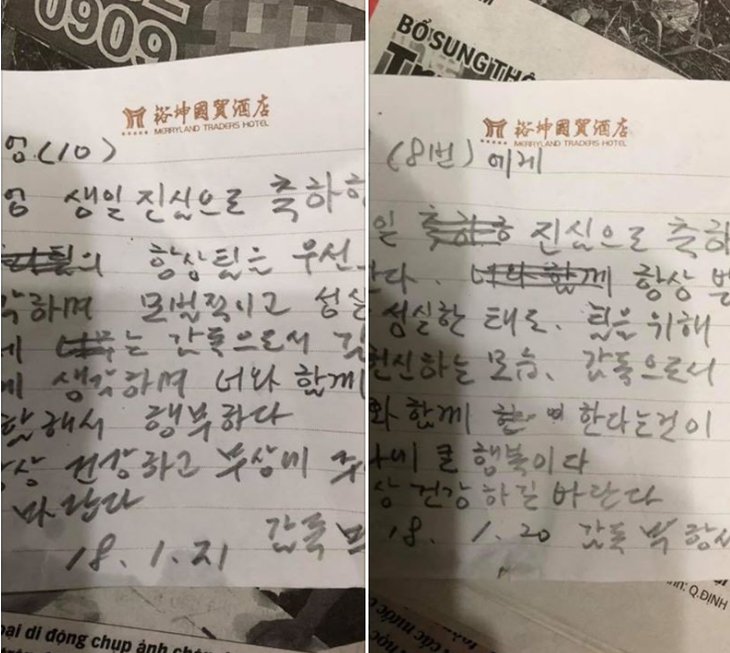 0909
裕坤國貿酒店
MERRYLAND TRADERS HOTEL
엉(10)
엉 생일 진심으로 축하
항상 팀을 우선
각하며 모범적이고 성실
에 는 감독으로서
게 생각하며 너와 함께
함해서 행복하다
상 건강하고 부상
바란다
18.1.21 감독
oại di động chụp ảnh
BỔ SUNG
裕坤國貿酒店
MERRYLAND TRADERS HOTEL
(8번)에게
일 진심으로 축하
다. 너와 함께 항상
성실한 태도, 팀을 위해
헌신하는 모습, 감독으로서
와 함께 한다는것이
큰 행복이다
상 건강하길 바란다
18. 1.20 감독 박항서
Q.ĐỊNH
các nước